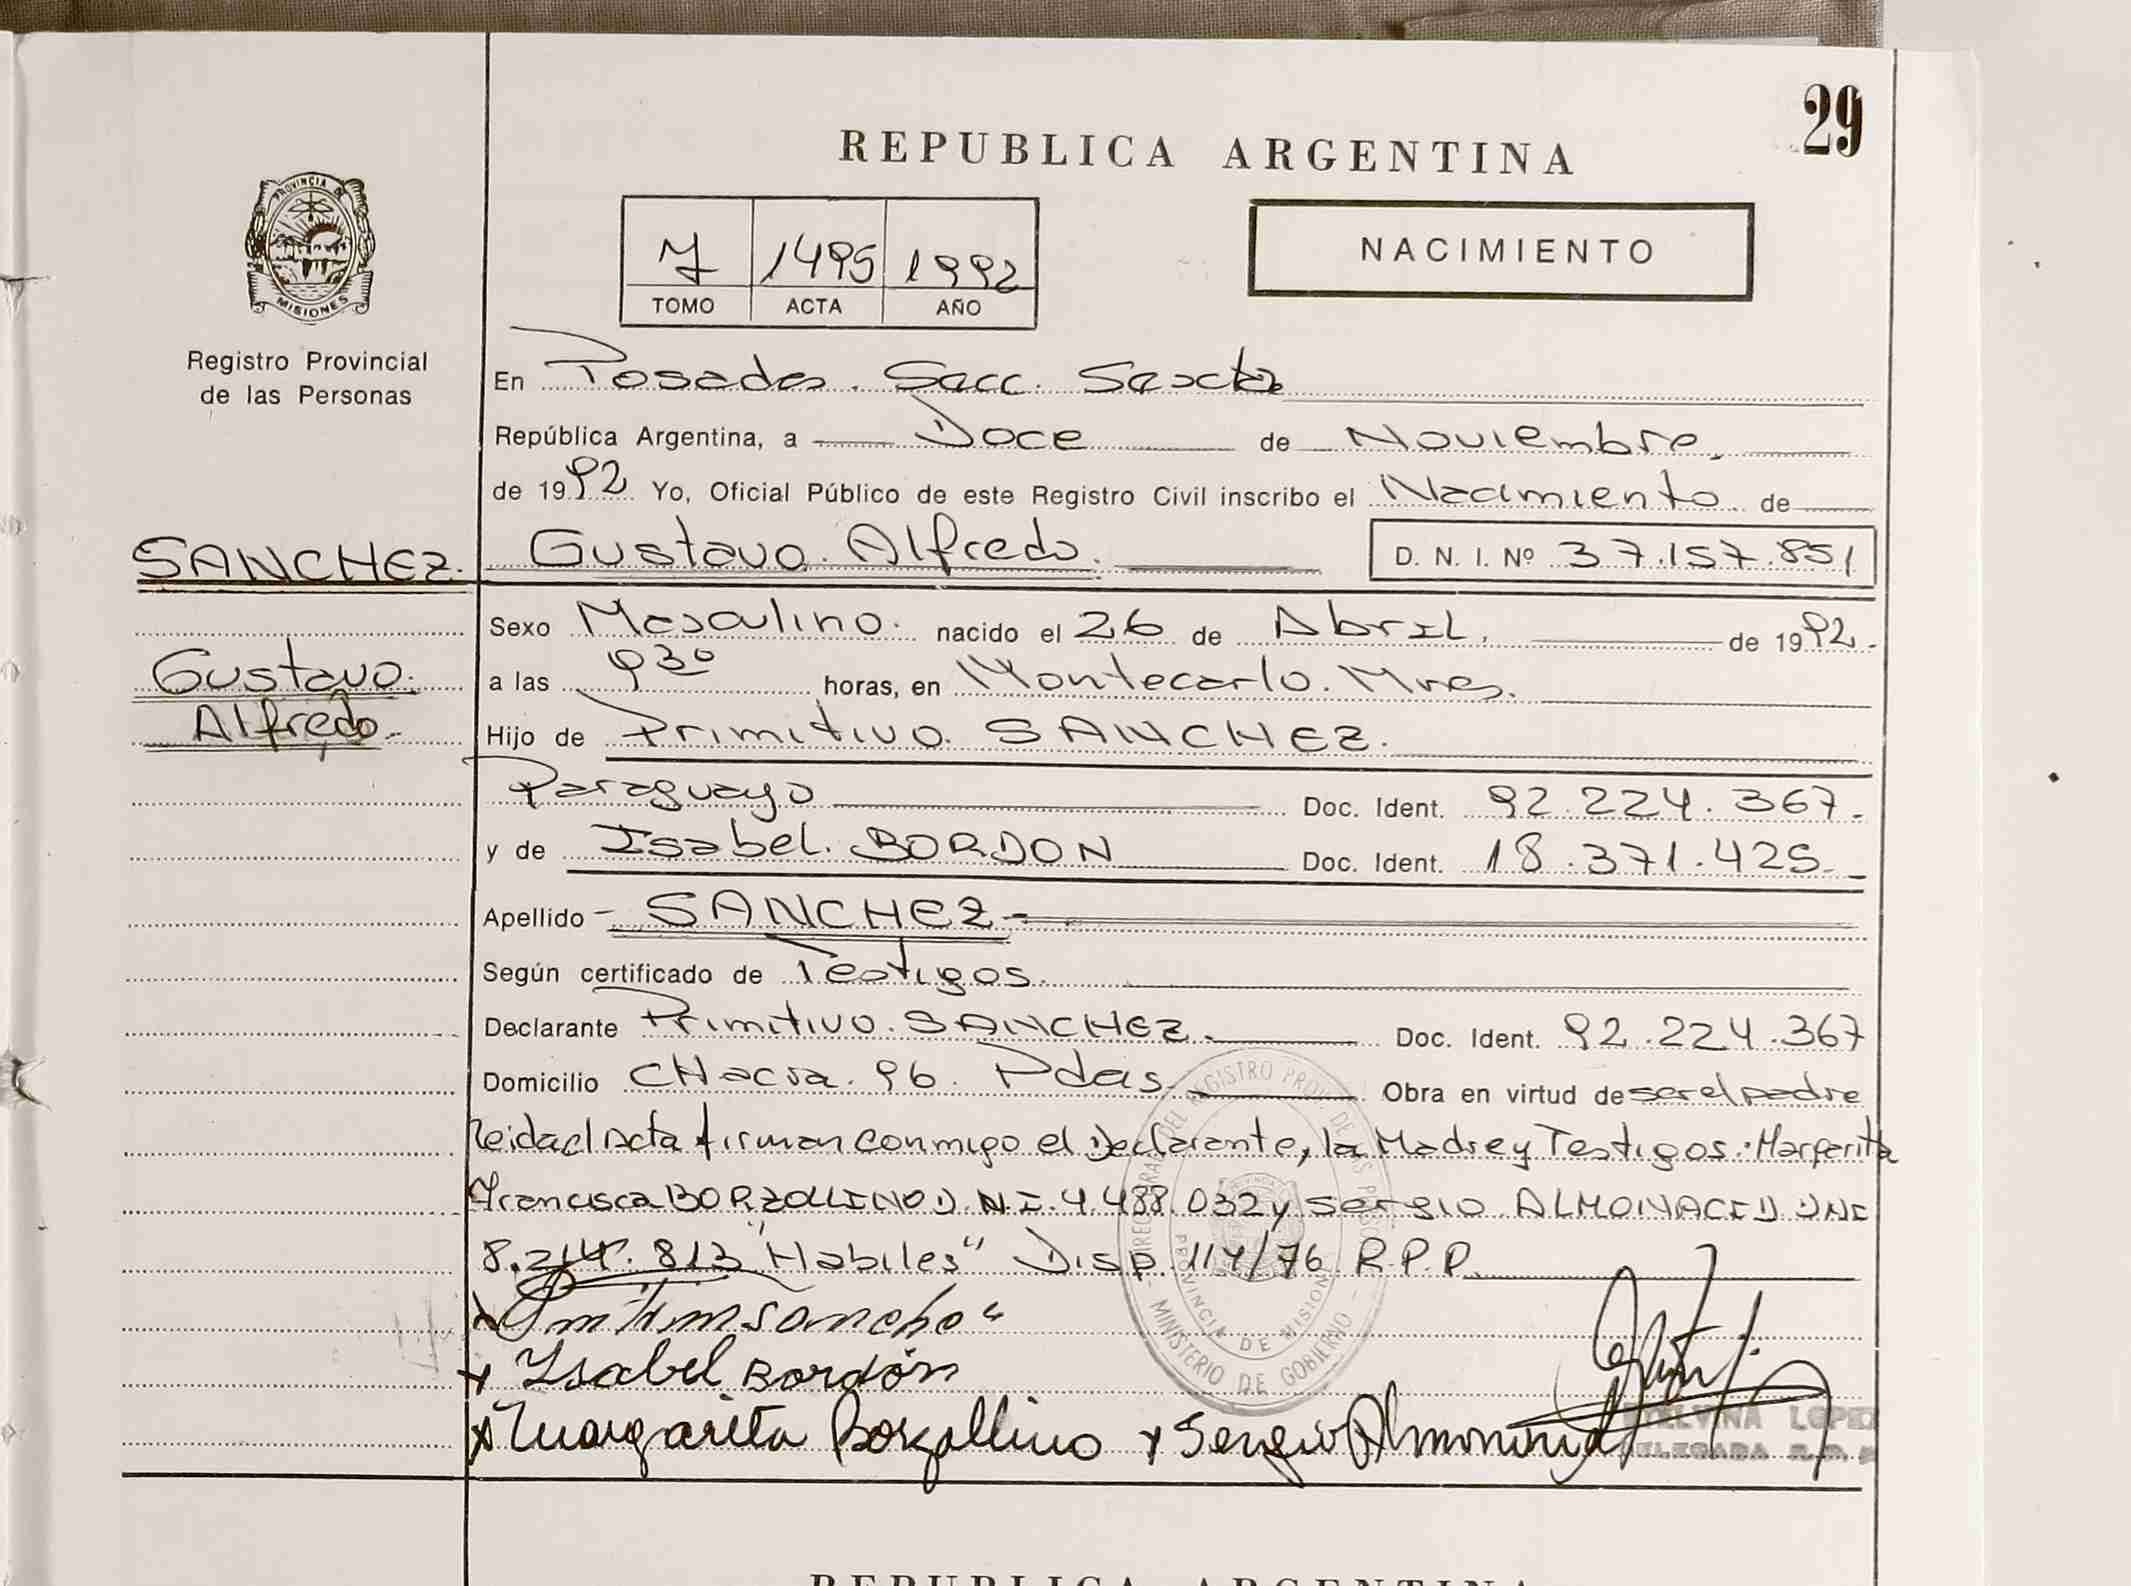 29
REPUBLICA ARGENTINA
PROVINCIA DE
MISIONES
Registro Provincial
de las Personas
1495 1992
TOMO ACTA AÑO
NACIMIENTO
En Posadas. Secc. Sexta
República Argentina, a Doce de Noviembre.
de 1992 Yo, Oficial Público de este Registro Civil inscribo el Nacimiento de
SANCHEZ. Gustavo. Alfredo. D. N. I. Nº 37.157.851
Sexo Masculino. nacido el 26 de Abril. de 1992.
Gustavo.
Alfredo.
a las 930 horas, en Montecarlo. Mnes.
Hijo de Primitivo. SANCHEZ.
Paraguayo Doc. Ident. 92.224.367.
y de Isabel. BORDON Doc. Ident. 18.371.425.
Apellido SANCHEZ
Según certificado de Testigos.
Declarante Primitivo. SANCHEZ. Doc. Ident. 92.224.367
Domicilio CHacra. 96. Pdas. Obra en virtud de ser el padre
leida el Acta firman conmigo el Declarante, la Madre y Testigos: Margarita
Francisca BORZOLLINO D.N.I. 4.488.032 y Sergio ALMONACID DNI
8.214.813 "Habiles" Disp. 114/76 R.P.P.
Isabel Bordón
Margarita Borzollino x Sergio Almonacid
DEL REGISTRO PROV. DE LAS PERSONAS
MINISTERIO DE GOBIERNO
PROVINCIA DE MISIONES
ETELVINA LOPEZ
DELEGADA
REPUBLICA ARGENTINA